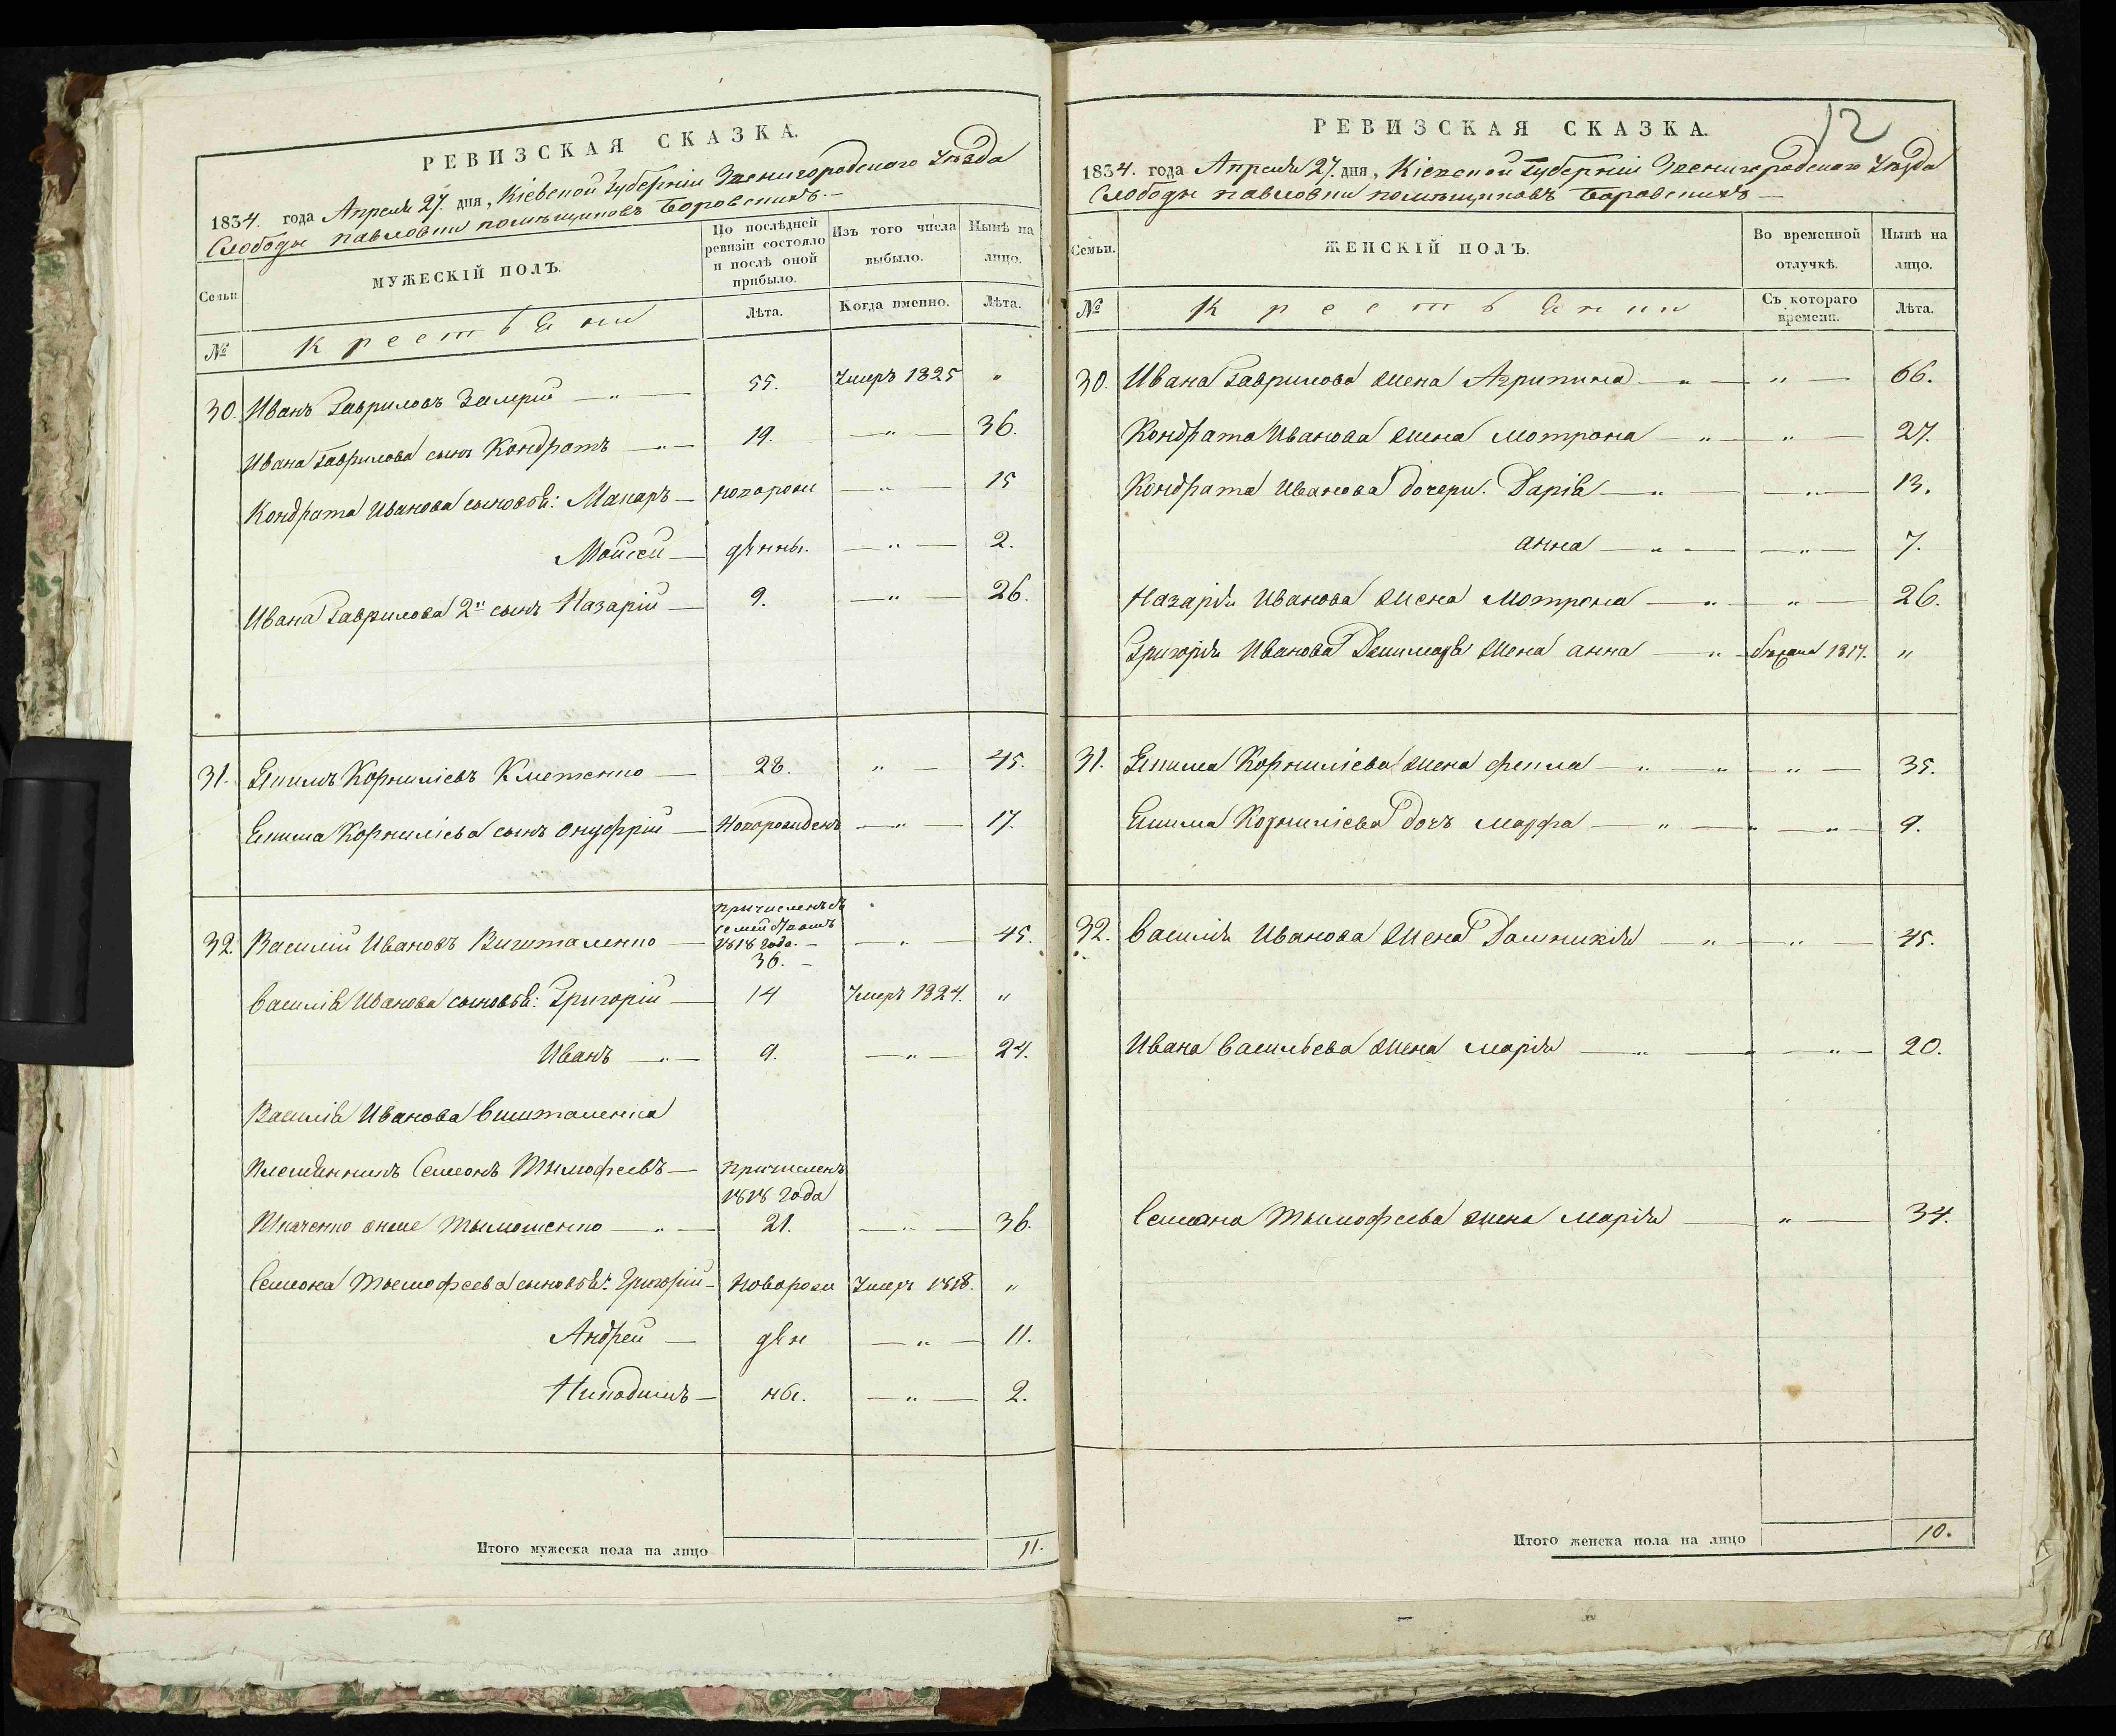 РЕВИЗСКАЯ СКАЗКА.
1834. года Апреля 27. дня, Кіевской Губерніи Звенигородского Уѣзда
Слободы Павловки помѣщиковъ Боровскихъ.—
Семьи
МУЖЕСКІЙ ПОЛЪ.
По послѣдней ревизіи состояло и послѣ оной прибыло.
Изъ того числа выбыло.
Нынѣ на лицо.
№
Крестьяни
Лѣта.
Когда именно.
Лѣта.
30. Иванъ Гавриловъ — „ — 55. Умеръ 1825 „
Ивана Гаврилова сынъ Кондратъ — „ — 19. — „ — 36.
Кондрата Иванова сыновья: Макаръ — новорож — „ — 15
Мойсей — денны. — „ — 2.
Ивана Гаврилова 2й сынъ Назарій — 9. — „ — 26.
31. Екимъ Корниліевъ — 28. „ — 45.
Екима Корниліева сынъ Онуфрій — Новорожденъ — „ — 17.
32. Василій Иванов — причисленъ съ семействомъ 1818 года. — 36. — — „ 45.
Василія Иванова сыновья: Григорій — 14 Умеръ 1824. „
Иванъ — „ — 9. — „ — 24.
Василія Иванова
племянникъ Семонъ Тымофеевъ — Причисленъ
1818 года
Ткаченко онже Тымошенко — „ — 21. — „ — 36.
Семона Тымофеева сыновья: Григорій — Новорож Умеръ 1818. „
Андрей — ден — „ — 11.
Никодимъ — ны. — „ — 2.
Итого мужеска пола на лицо 11.
12
РЕВИЗСКАЯ СКАЗКА.
1834. года Апреля 27. дня, Кіевской Губерніи Звенигородского Уѣзда
Слободы Павловки помѣщиковъ Боровскихъ —
Семьи.
ЖЕНСКІЙ ПОЛЪ.
Во временной отлучкѣ.
Нынѣ на лицо.
№
Крестьянки
Съ котораго времени.
Лѣта.
30. Ивана Гаврилова жена Агрипина — „ — „ — 66.
Кондрата Иванова жена Мотрона — „ — „ — 27.
Кондрата Иванова дочери. Дарія — „ — — „ — 13.
Анна — „ — — „ — 7.
Назарія Иванова жена Мотрона — „ — „ — 26.
Григорія Иванова жена Анна — „ — 1817. „
31. Екима Корниліева жена Фекла — „ — „ — „ — 35.
Екима Корниліева дочъ Марфа — „ — „ — „ — 9.
32. Василія Иванова жена Домникія — „ — „ — 45.
Ивана Васильева жена Марія — „ — „ — „ — 20.
Семона Тымофеева жена Марія — „ — 34.
Итого женска пола на лицо 10.